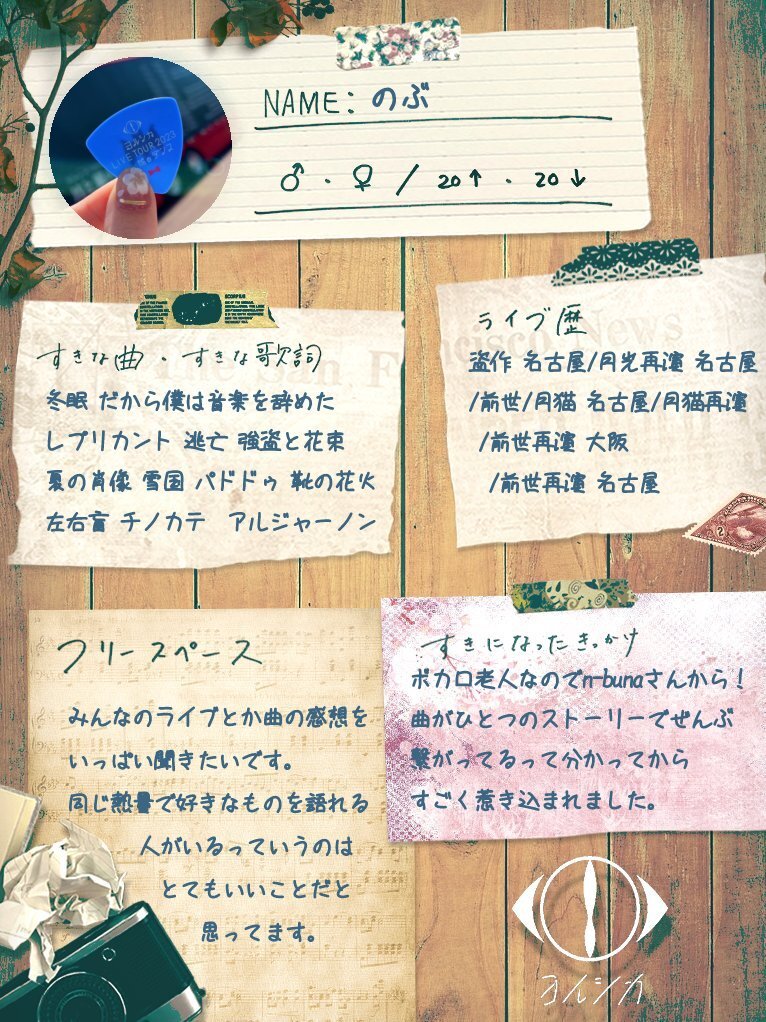 ヨルシカ
LIVE TOUR 2023
NAME: のぶ
♂ · ♀ / 20↑ · 20↓
すきな曲・すきな歌詞
冬眠 だから僕は音楽を辞めた
レプリカント 逃亡 強盗と花束
夏の肖像 雪国 パドドゥ 靴の花火
左右盲 チノカテ アルジャーノン
ライブ歴
盗作 名古屋/月光再演 名古屋
/前世/月猫 名古屋/月猫再演
/前世再演 大阪
/前世再演 名古屋
フリースペース
みんなのライブとか曲の感想を
いっぱい聞きたいです。
同じ熱量で好きなものを語れる
人がいるっていうのは
とてもいいことだと
思ってます。
すきになったきっかけ
ボカロ老人なのでn-bunaさんから！
曲がひとつのストーリーでぜんぶ
繋がってるって分かってから
すごく惹き込まれました。
ヨルシカ